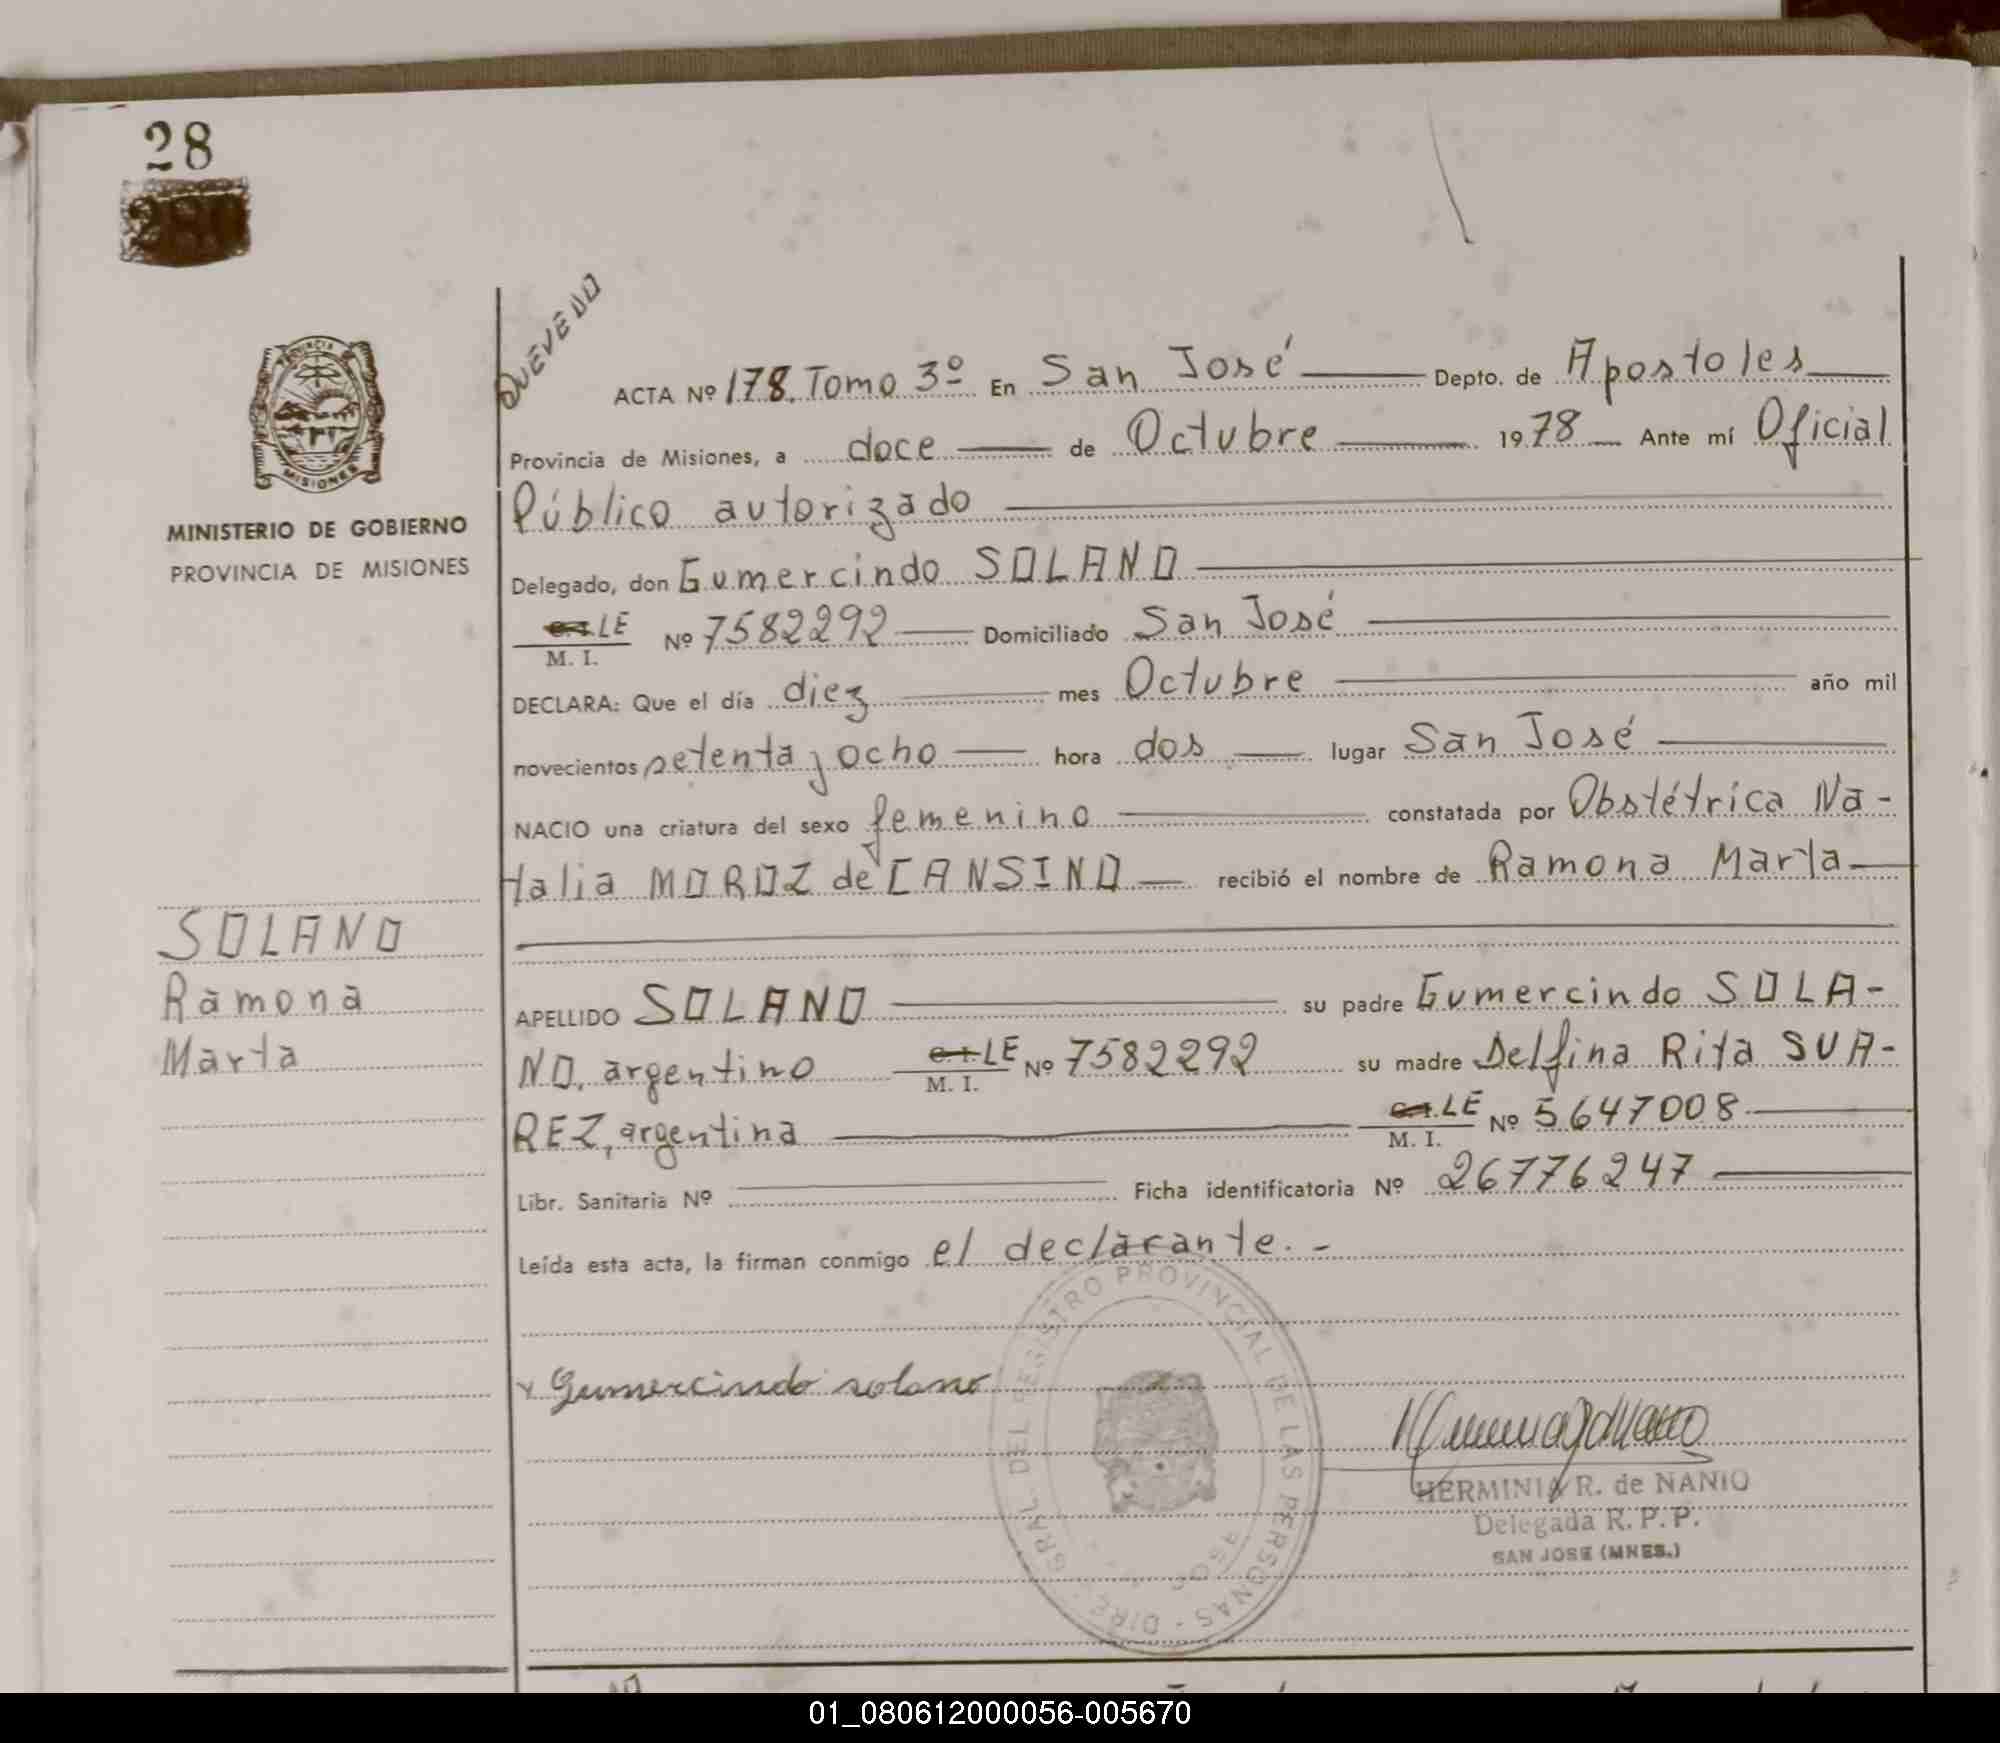 28
QUEVEDO
ACTA Nº 178. Tomo 3º En San José Depto. de Apostoles
Provincia de Misiones, a doce de Octubre 1978 Ante mí Oficial
Público autorizado
Delegado, don Gumercindo SOLANO
C.I. LE
M. I. Nº 7582292 Domiciliado San José
DECLARA: Que el día diez mes Octubre año mil
novecientos setenta y ocho hora dos lugar San José
NACIO una criatura del sexo femenino constatada por Obstétrica Na-
talia MOROZ de CANSINO recibió el nombre de Ramona Marta
APELLIDO SOLANO su padre Gumercindo SOLA-
NO, argentino C.I. LE M. I. Nº 7582292 su madre Delfina Rita SUA-
REZ, argentina C.I. LE M. I. Nº 5647008
Libr. Sanitaria Nº Ficha identificatoria Nº 26776247
Leída esta acta, la firman conmigo el declarante. -
Gumercindo solano
HERMINIA R. de NANIO
Delegada R. P. P.
SAN JOSE (MNES.)
DIRE. GRAL. DEL REGISTRO PROVINCIAL DE LAS PERSONAS
PROVINCIA
MISIONES
MINISTERIO DE GOBIERNO
PROVINCIA DE MISIONES
SOLANO
Ramona
Marta
01_080612000056-005670